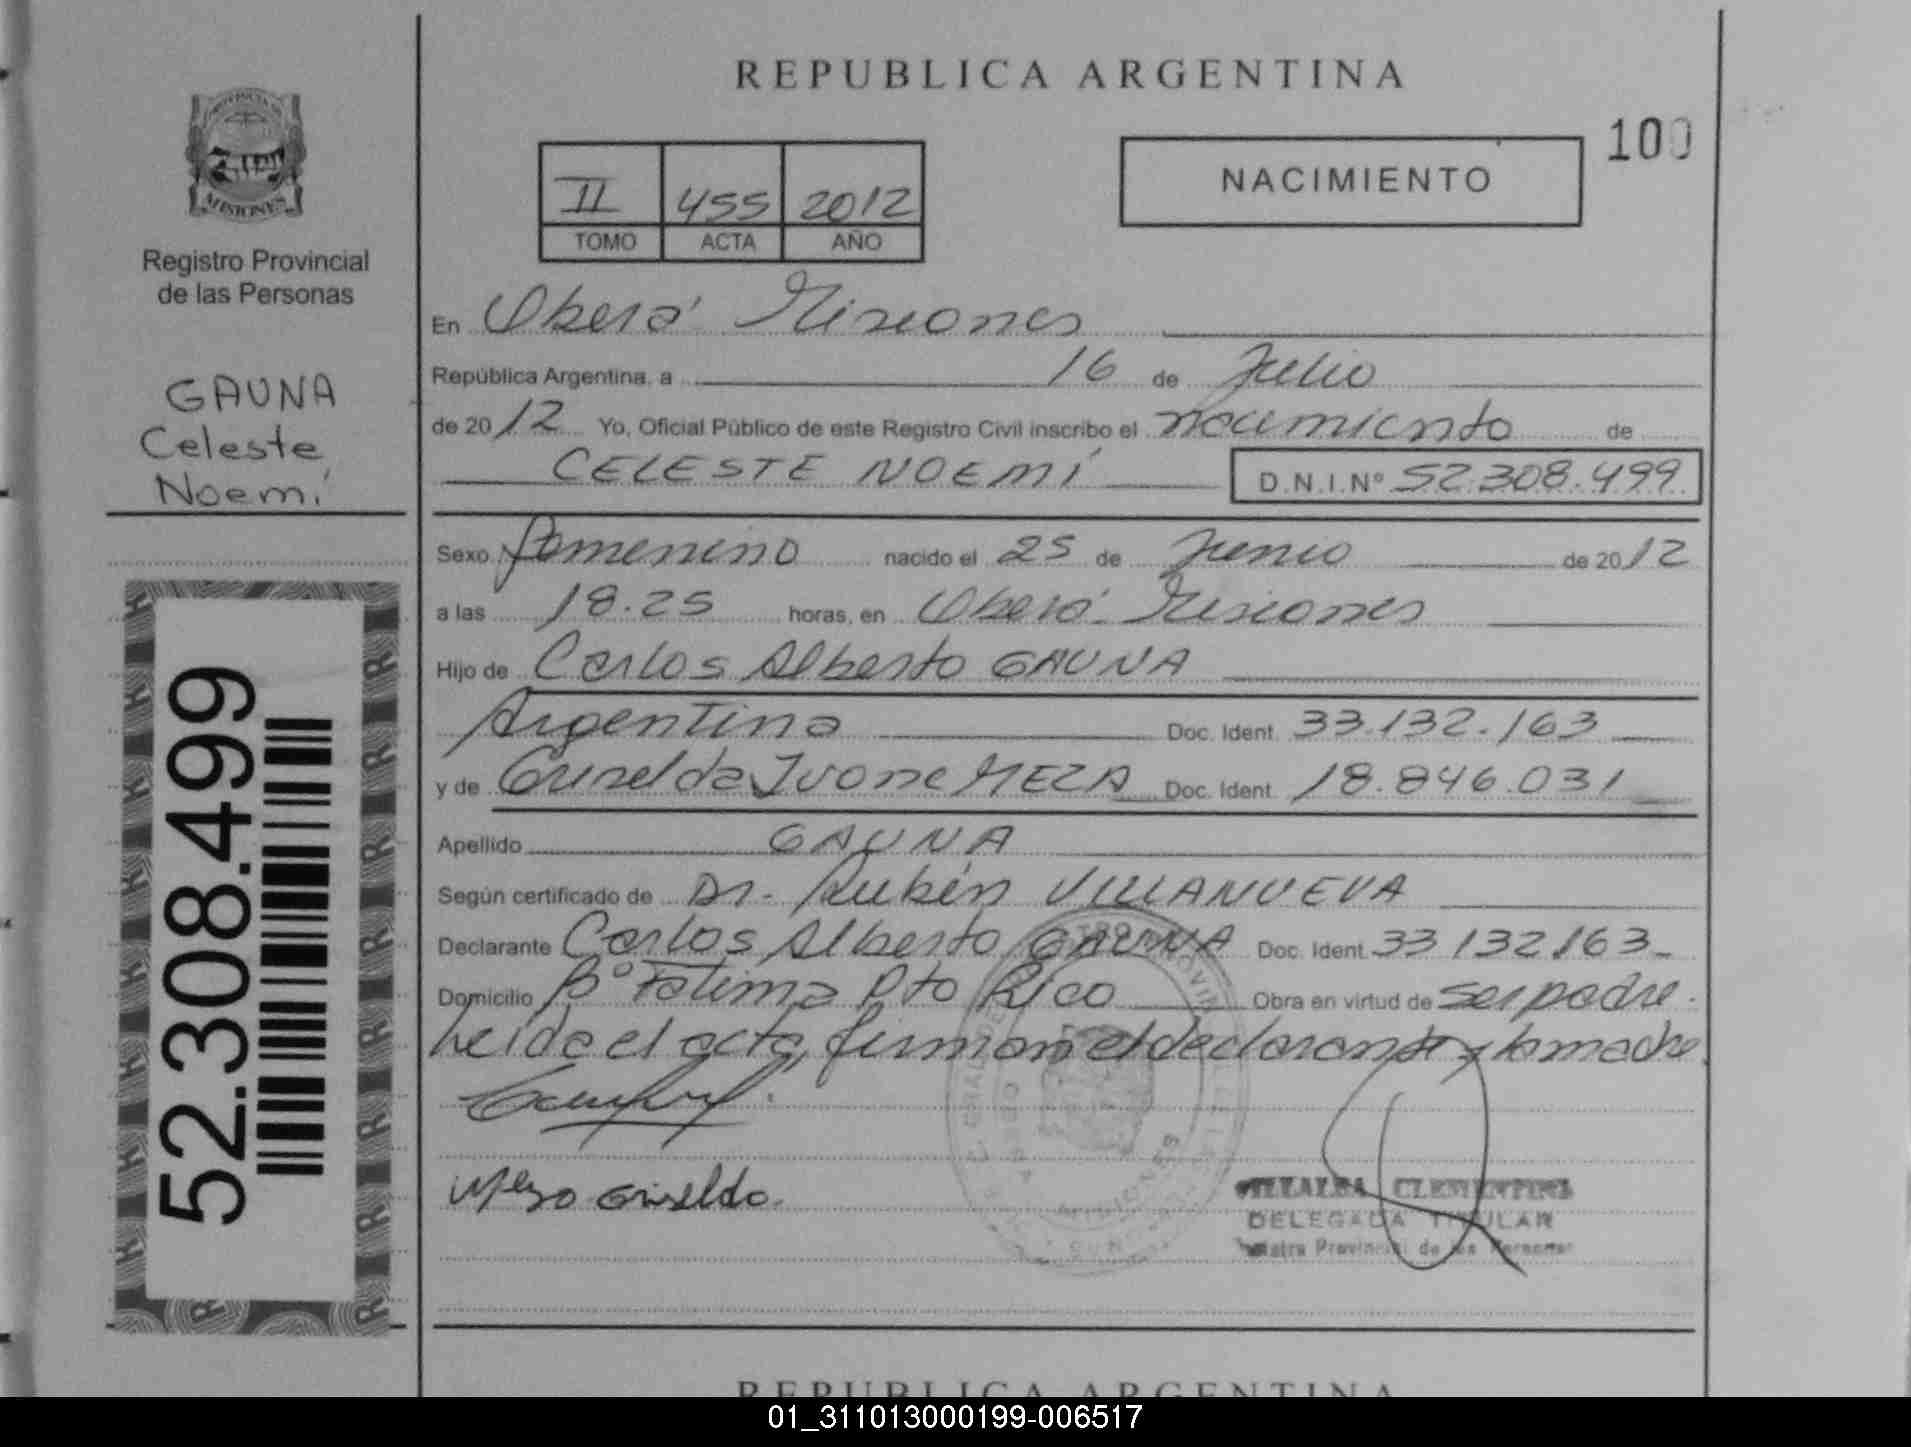 REPUBLICA ARGENTINA
100
NACIMIENTO
II 455 2012
TOMO ACTA AÑO
PROVINCIA DE
MISIONES
Registro Provincial
de las Personas
GAUNA
Celeste
Noemí
52.308.499
En Oberá Misiones
República Argentina, a 16 de Julio
de 2012 Yo, Oficial Público de este Registro Civil inscribo el nacimiento de
CELESTE NOEMÍ D.N.I.Nº 52.308.499
Sexo Femenino nacido el 25 de Junio de 2012
a las 18.25 horas, en Oberá Misiones
Hijo de Carlos Alberto GAUNA
Argentina Doc. Ident. 33.132.163
y de Griselda Ivone MEZA Doc. Ident. 18.846.031
Apellido GAUNA
Según certificado de Dr. Rubén VILLANUEVA
Declarante Carlos Alberto GAUNA Doc. Ident. 33 132.163
Domicilio Bº Fatima Pto Rico Obra en virtud de ser padre.
Leída el acta, firman el declarante y la madre.
Meza Griselda.
VILLALBA CLEMENTINA
DELEGADA TITULAR
Registro Provincial de las Personas
MISIONES
REPUBLICA ARGENTINA
01_311013000199-006517